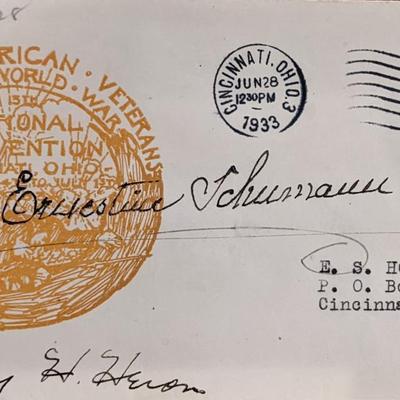 RICAN · VETERANS
WORLD · WAR
13TH
IONAL
VENTION
ATI. OHIO.
TO JULY
CINCINNATI, OHIO. 3
JUN 28
12 30 PM
1933
Ernestine Schumann
E. S. H
P. O. Bo
Cincinna
H. Heron